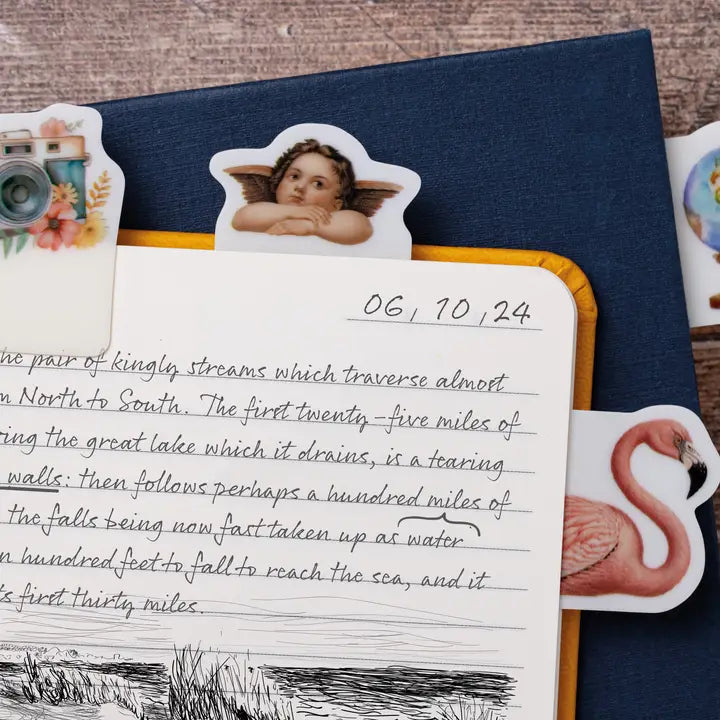 06, 10, 24
he pair of kingly streams which traverse almost
m North to South. The first twenty-five miles of
ring the great lake which it drains, is a tearing
walls: then follows perhaps a hundred miles of
the falls being now fast taken up as water
n hundred feet to fall to reach the sea, and it
ts first thirty miles.